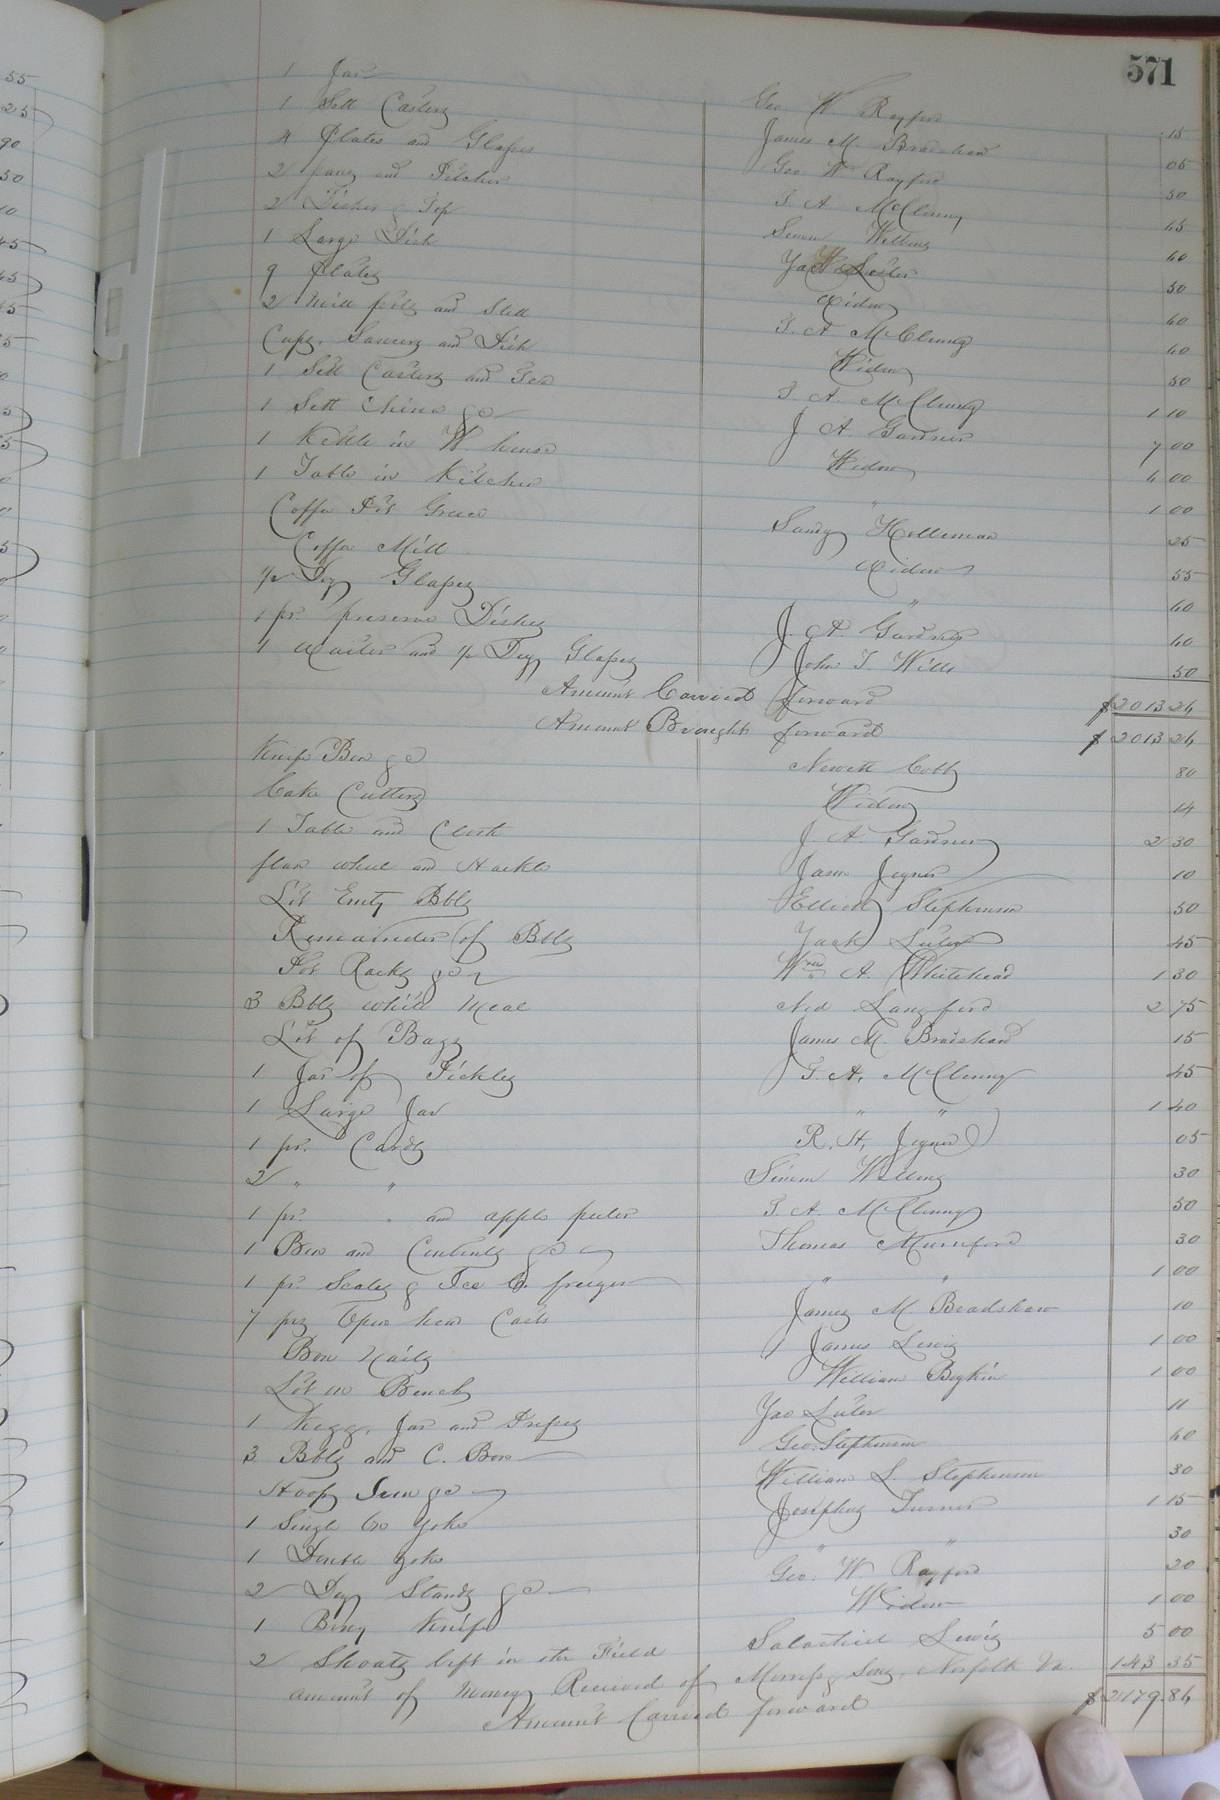 571
1 Jar Geo W Rayford 15
1 Sett Castors James M. Bradshaw 05
4 Plates and Glasses Geo W Rayford 50
2 pans and Pitcher T A McClenny 45
2 Dishes & Top Simon Welling 60
1 Large Dish Jas Luter 50
9 Plates Widow 60
2 Milk pots and Sett T. A McClenny 60
Cups, Saucers and Dish Widow 50
1 Sett Castors and Tea T. A. McClenny 1 10
1 Sett China &c J A Gardner 7 00
1 Kettle in W. house Widow 6 00
1 Table in Kitchen " 1 00
Coffee Pot Grease Holleman 25
Coffee Mill Widow 55
1/2 Doz Glasses " 60
1 pr. preserve Dishes J. A. Gardner 60
1 Waiter and 1/2 Doz Glasses John T. Wills 50
Amount Carried forward $2013 24
Amount Brought forward $2013 24
Knife Box &c Newitt Cobb 80
Cake Cutters Widow 14
1 Table and Cloth J. A. Gardner 2 30
flax wheel and Hackle Jason Joyner 10
Lot Emty Bbls Elliott Stephenson 50
Remainder of Bbls Jack Luter 45
Pot Racks &c A. Whitehead 1 30
3 Bbls while Meal Ned Langford 2 75
Lot of Bags James M. Bradshaw 15
1 Jar of Pickles T. A. McClenny 45
1 Large Jar " " 1 40
1 pr. Cards R. H. Joyner 05
2 " " Simon Welling 30
1 pr. " and apple peeler T A. McClenny 50
1 Box and Contents &c Thomas Mumford 30
1 pr. Scales & Ice C. freezer " " 1 00
7 pcs James M. Bradshaw 10
Box Nails James Lewis 1 00
Lot on Bench William Boykin 1 00
1 Kegg, Jar and Jas Luter 11
3 Bbls and C. Box Geo. Stephenson 60
Hoop Iron &c William L. Stephenson 30
1 Single Ox Yoke Josephus Turner 1 15
1 Double Yoke " " 30
2 Stands &c Geo. W Rayford 20
1 Knife Widow 1 00
2 Shoats left in the Field Salathiel Lewis 5 00
Amount of Money Received of Sons, Norfolk Va. 143 35
Amount Carried forward $2179 84